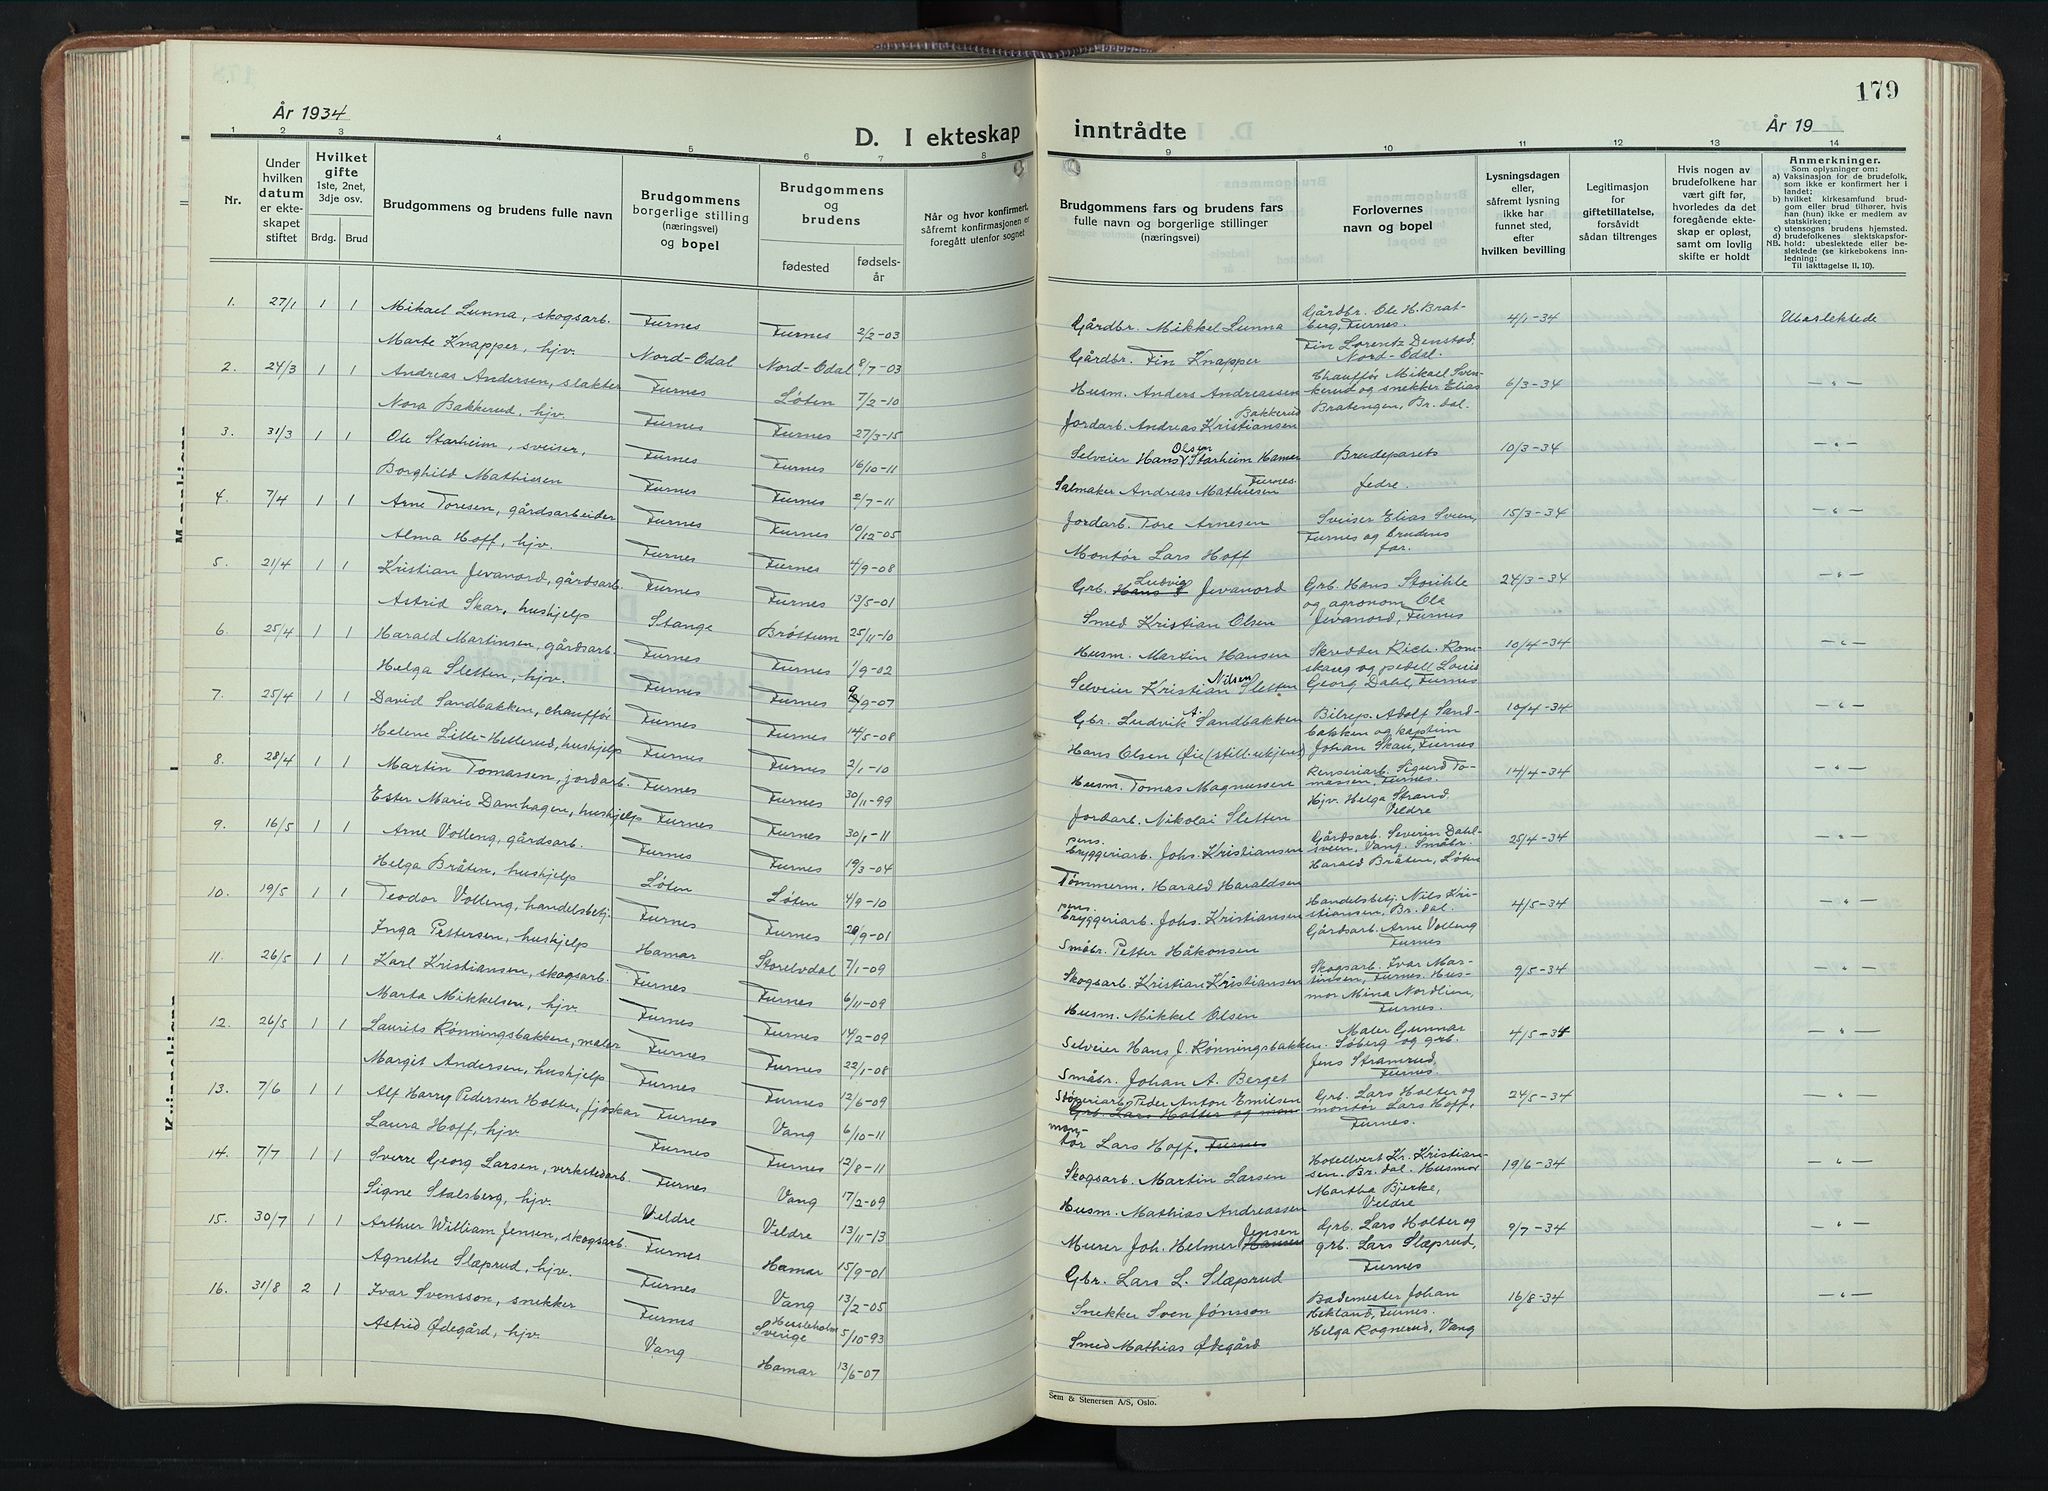 179
År 1934
D. I ekteskap inntrådte
År 19
1 2 3 4 5 6 7 8 9 10 11 12 13 14
Nr.
Under hvilken datum er ekteskapet stiftet
Hvilket gifte 1ste, 2net, 3dje osv.
Brdg. Brud
Brudgommens og brudens fulle navn
Brudgommens borgerlige stilling (næringsvei) og bopel
Brudgommens og brudens
fødested
fødsels-år
Når og hvor konfirmert, såfremt konfirmasjonen er foregått utenfor sognet
Brudgommens fars og brudens fars fulle navn og borgerlige stillinger (næringsvei)
Forlovernes navn og bopel
Lysningsdagen eller, såfremt lysning ikke har funnet sted, efter hvilken bevilling
Legitimasjon for giftetillatelse, forsåvidt sådan tiltrenges
Hvis nogen av brudefolkene har vært gift før, hvorledes da det foregående ekteskap er opløst, samt om lovlig skifte er holdt
Anmerkninger.
Som oplysninger om:
a) Vaksinasjon for de brudefolk, som ikke er konfirmert her i landet;
b) hvilket kirkesamfund brudgom eller brud tilhører, hvis han (hun) ikke er medlem av statskirken;
c) utensogns brudens hjemsted.
d) brudefolkenes slektskapsfor-
NB. hold: ubeslektede eller beslektede (se kirkebokens innledning: Til iakttagelse II. 10).
1. 27/1 1 1 Mikael Lunna, skogsarb. Furnes Furnes 2/2-03 Gårdbr. Mikkel Lunna Gårdbr. Ole H. Bratberg, Furnes. 4/1-34 Ubeslektede
Marte Knapper, hjv. Nord-Odal Nord-Odal 8/7-03 Gårdbr. Fin Knapper Fin Lorentz Denstad, Nord-Odal.
2. 24/3 1 1 Andreas Andersen, slakter Furnes Løten 7/2-10 Husm. Anders Andreassen Chauffør Mikael Svenkerud og snekker Elias 6/3-34 -"-
Nora Bakkerud, hjv. Furnes Furnes 27/3-15 Jordarb. Andreas Kristiansen Bakkerud Bratengen, Br.dal.
3. 31/3 1 1 Ole Starheim, sveiser, Furnes Furnes 16/10-11 Selveier Hans Olsen Starheim Hamar Brudeparets 10/3-34 -"-
Borghild Mathisen Furnes Furnes 2/7-11 Salmaker Andreas Mathiesen Furnes fedre.
4. 7/4 1 1 Arne Toresen, gårdsarbeider Furnes Furnes 10/12-05 Jordarb. Tore Arnesen Sveiser Elias Sveen, 15/3-34 -"-
Alma Hoff, hjv. Furnes Furnes 4/9-08 Montør Lars Hoff Furnes og brudens far.
5. 21/4 1 1 Kristian Jevanord, gårdsarb. Furnes Furnes 13/5-01 Grb. Ludvig Jevanord Grb. Hans Storihle 24/3-34 -"-
Astrid Skar, hushjelp Stange Brøttum 25/11-10 Smed Kristian Olsen og agronom Ola Jevanord, Furnes
6. 25/4 1 1 Harald Martinsen, gårdsarb. Furnes Furnes 1/9-02 Husm. Martin Hansen Skredder Rich. Romskaug og pedell Louis 10/4-34 -"-
Helga Sletten, hjv. Furnes Furnes 9/9-07 Selveier Kristian Nilsen Sletten Georg Dahl, Furnes
7. 25/4 1 1 David Sandbakken, chauffør Furnes Furnes 14/5-08 Gbr. Ludvik A. Sandbakken Bilrep. Adolf Sandbakken og kaptein 10/4-34 -"-
Helene Lille-Hellerud, hushjelp Furnes Furnes 2/1-10 Hans Olsen Øie (still. ukjent) Johan Skau, Furnes
8. 28/4 1 1 Martin Tomassen, jordarb. Furnes Furnes 30/11-99 Husm. Tomas Magnussen Renseriarb. Sigurd Tomassen, Furnes. 14/4-34 -"-
Ester Marie Damhagen, hushjelp Furnes Furnes 30/1-11 Jordarb. Nikolai Sletten Hjv. Helga Strand, Veldre
9. 16/5 1 1 Arne Volleng, gårdsarb. Furnes Furnes 19/3-04 pens. bryggeriarb. Johs. Kristiansen Gårdsarb. Severin Dahlsveen, Vang. Småbr. 25/4-34 -"-
Helga Bråten, hushjelp Løten Løten 4/9-10 Tømmerm. Harald Haraldsen Harald Bråten, Løten
10. 19/5 1 1 Teodor Volleng, handelsbetj. Furnes Furnes 29/9-01 pens. bryggeriarb. Johs. Kristiansen Handelsbetj. Nils Kristiansen, Br.dal. 4/5-34 -"-
Inga Pettersen, hushjelp Hamar Storelvdal 7/1-09 Småbr. Petter Håkonsen Gårdsarb. Arne Volleng Furnes
11. 26/5 1 1 Karl Kristiansen, skogsarb. Furnes Furnes 6/11-09 Skogsarb. Kristian Kristiansen Skogsarb. Ivar Martinsen, Furnes. Hus- 9/5-34 -"-
Marta Mikkelsen, hjv. Furnes Furnes 14/2-09 Husm. Mikkel Olsen mor Mina Nordlien, Furnes.
12. 26/5 1 1 Laurits Rønningsbakken, maler Furnes Furnes 22/1-08 Selveier Hans J. Rønningsbakken. Maler Gunnar Søberg og grb. 4/5-34 -"-
Margit Andersen, hushjelp Furnes Furnes 12/6-09 Småbr. Johan A. Berget Jens Stramrud, Furnes.
13. 7/6 1 1 Alf Harry Pedersen Holter, fjøskar Furnes Vang 6/10-11 Støperiarb. Peder Anton Emilsen Grb. Lars Holter og mon- Grb. Lars Holter og montør Lars Hoff, 24/5-34 -"-
Laura Hoff, hjv. Furnes Furnes 12/8-11 montør Lars Hoff, Furnes Furnes.
14. 7/7 1 1 Sverre Georg Larsen, verkstedarb. Furnes Vang 17/2-09 Skogsarb. Martin Larsen Hotellvert Kr. Kristiansen. Br.dal. Husmor 19/6-34 -"-
Signe Stalsberg, hjv. Veldre Veldre 13/11-13 Husm. Mathias Andreassen Martha Bjerke, Veldre
15. 30/7 1 1 Arthur William Jensen, skogsarb. Furnes Hamar 15/9-01 Murer Joh. Helmer Jensen Hansen Grb. Lars Holter og 9/7-34 -"-
Agnethe Slæprud, hjv. Furnes Vang 13/2-05 Gbr. Lars L. Slæprud grb. Lars Slæprud, Furnes
16. 31/8 2 1 Ivar Svensson, snekker Furnes Hessleholm Sverige 5/10-93 Snekker Sven Jönsson Bademester Johan Hekland, Furnes. 16/8-34 -"-
Astrid Ødegård, hjv. Vang Hamar 13/6-07 Smed Mathias Ødegård Helga Rognerud, Vang
Sem & Stenersen A/S, Oslo.